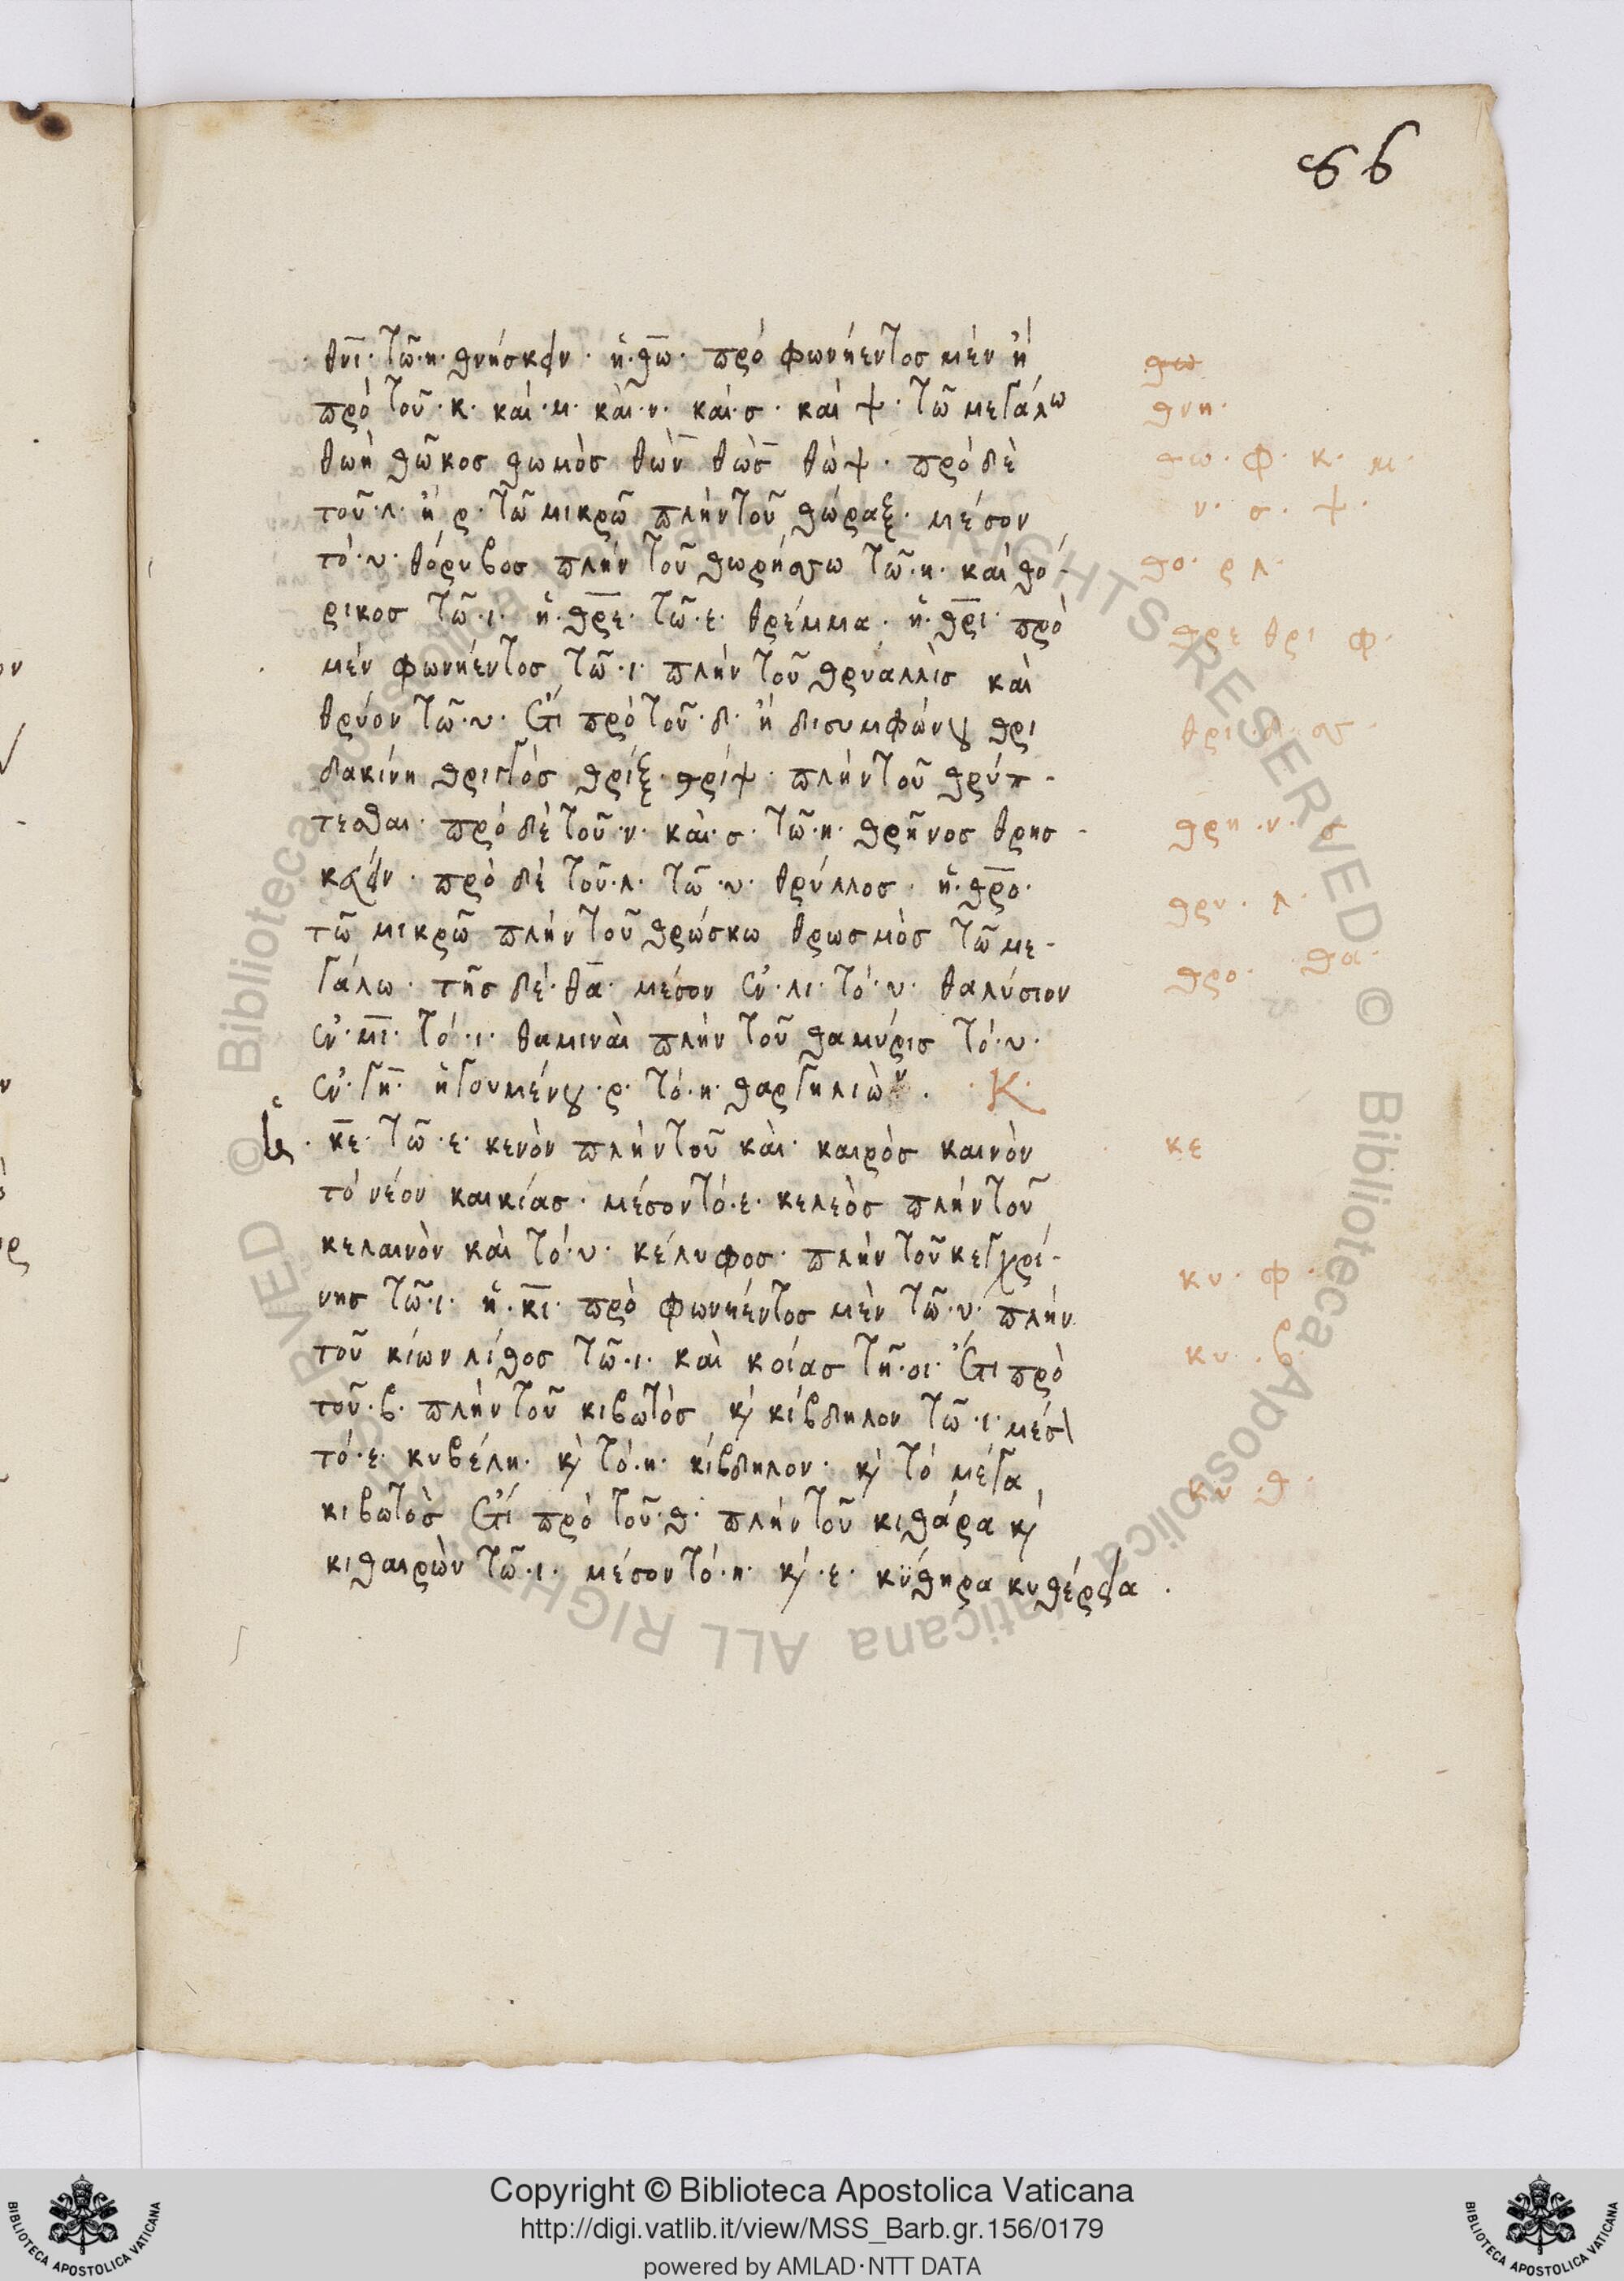 86
θνι· τῶ·η· θνήσκειν· ἡ·θω· πρὸ φωνήεντος μὲν ἢ
πρὸ τοῦ·κ· καὶ·μ· καὶ·ν· καὶ·σ· καὶ ψ· τῶ μεγάλω
θωὴ θῶκος θωμὸς θὼν θὼς θὼψ· πρὸ δὲ
τοῦ·λ· ἢ ρ· τῶ μικρῶ πλὴν τοῦ θώραξ· μέσον
τὸ·υ· θόρυβος πλὴν τοῦ θωρήσσω τῶ·η· καὶ θό-
ρικος τῶ·ι· ἡ·θρε· τῶ·ε· θρέμμα· ἡ·θρι· πρὸ
μὲν φωνήεντος τῶ·ι· πλὴν τοῦ θρυαλλὶς καὶ
θρύον τῶ·υ· ἔτι πρὸ τοῦ·δ· ἢ δισυμφώνου θρι
δακίνη θριστὸς θρίξ· θρίψ· πλὴν τοῦ θρύπ-
τεσθαι· πρὸ δὲ τοῦ·ν· καὶ·σ· τῶ·η· θρῆνος θρησ-
κεύειν· πρὸ δὲ τοῦ·λ· τῶ·υ· θρύλλος· ἡ·θρο·
τῶ μικρῶ πλὴν τοῦ θρώσκω θρωσμὸς τῶ με-
γάλω· τῆς δὲ·θα· μέσον ἐν·λι· τὸ·υ· θαλύσιον
ἐν·μι· τὸ·ι· θαμιναὶ πλὴν τοῦ θαμύρις τὸ·υ·
ἐν·γη· ἡγουμένου·ρ· τὸ·η· θαργηλιὼν. ·Κ·
ἡ· κε· τῶ·ε· κενὸν πλὴν τοῦ καὶ· καιρὸς καινὸν
τὸ νέον καικίας· μέσον τὸ·ε· κελεὸς πλὴν τοῦ
κελαινὸν καὶ τὸ·υ· κέλυφος· πλὴν τοῦ κεγχρί-
νης τῶ·ι· ἡ·κι· πρὸ φωνήεντος μὲν τῶ·υ· πλὴν
τοῦ κίων λίθος τῶ·ι· καὶ κοίας τῆ·οι· ἔτι πρὸ
τοῦ·β· πλὴν τοῦ κιβωτὸς κ κίβδηλον τῶ·ι· μέσ\
τὸ·ε· κυβέλη· κ τὸ·η· κίβδηλον· κ τὸ μέγα
κιβωτὸς ἔτι πρὸ τοῦ·θ· πλὴν τοῦ κιθάρα κ
κιθαιρὼν τῶ·ι· μέσον τὸ·η· κ·ε· κύθηρα κυθέρεια.
θω
θνη·
θω· φ· κ· μ·
ν· σ· ψ·
θο· ρ λ·
θρε θρι φ·
θρι·δ· σσ·
θρη·ν· σ
θρυ· λ·
θρο· θα·
κε
κυ· φ·
κυ·β·
κυ·θ·
Copyright © Biblioteca Apostolica Vaticana
http://digi.vatlib.it/view/MSS_Barb.gr.156/0179
powered by AMLAD·NTT DATA